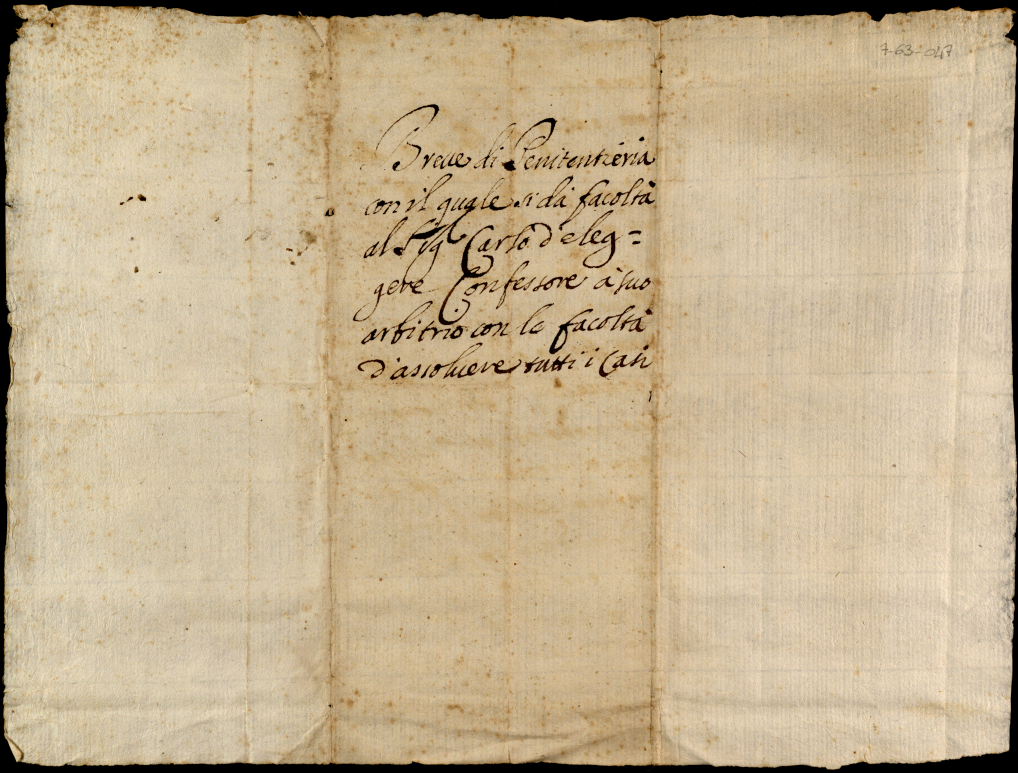 7-63-047
Breue di Penitentieria
con il quale si dà facoltà
al Sig Carlo d'eleg=
gere Confessore à suo
arbitrio con le facoltà
d'assoluere tutti i Casi